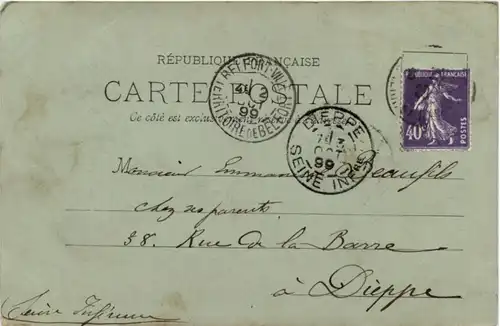 RÉPUBLIQUE FRANÇAISE
CARTE POSTALE
Ce côté est exclus
BELFORT-VILLE
99
TERRITOIRE DE BELFORT
DIEPPE
13
OCT
99
SEINE INFRE
REPUBLIQUE FRANÇAISE
40c
POSTES
Monsieur Emmanuel Beaufils
chez ses parents
38. Rue de la Barre
à Dieppe
Seine Inférieure